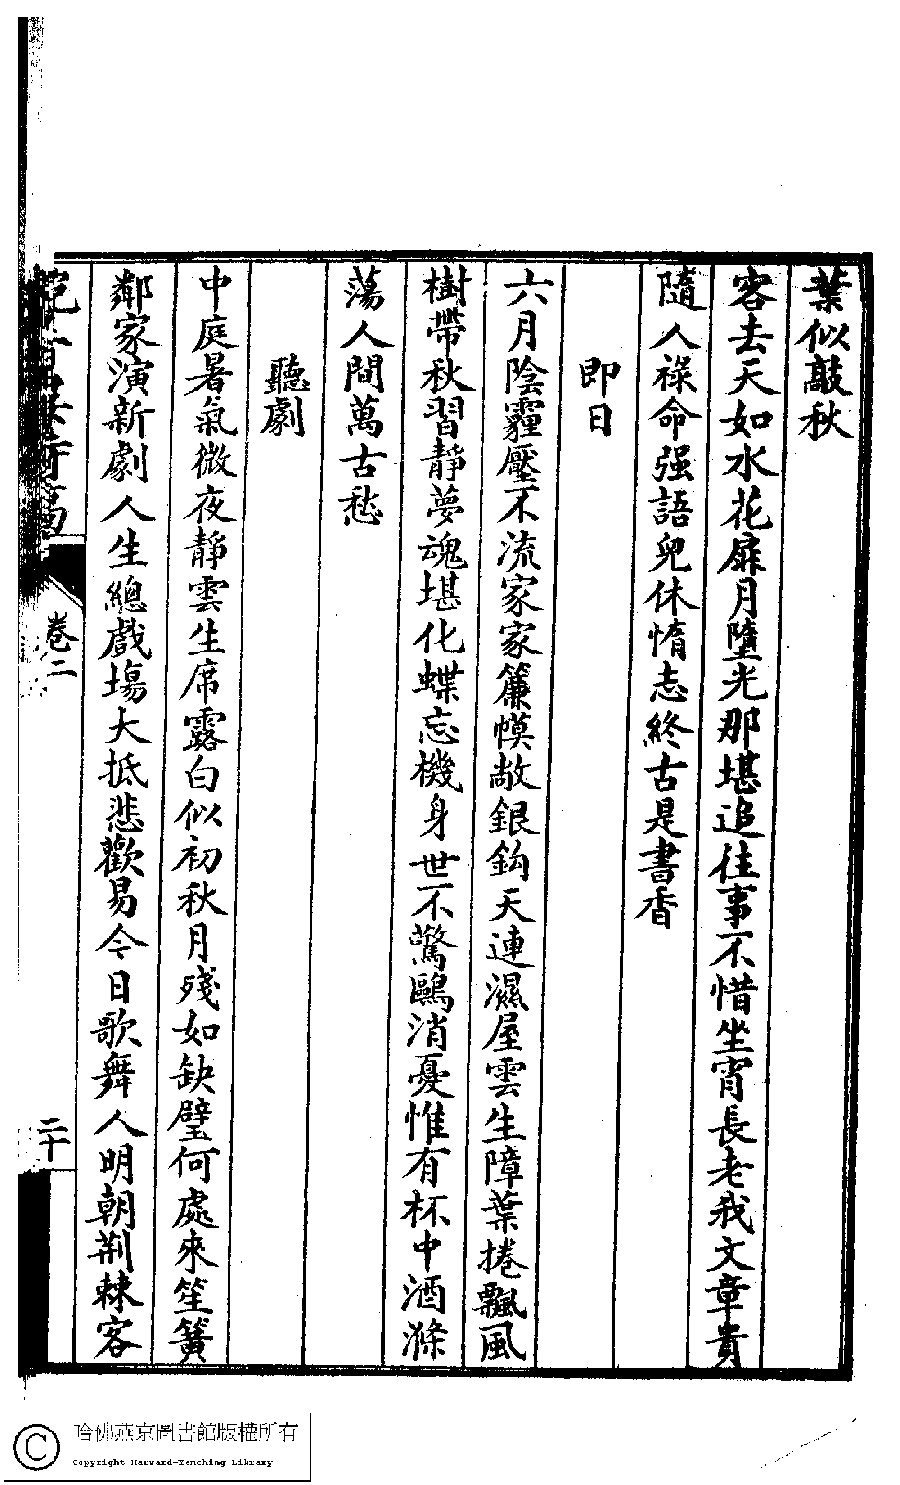 葉似敲秋
客去天如水花扉月墮光那堪追往事不惜坐宵長老我文章貴
隨人祿命强語兒休惰志終古是書香
即日
六月陰霾壓不流家家簾幙敞銀鈎天連濕屋雲生障葉捲飄風
樹帶秋習靜夢魂堪化蝶忘機身世不驚鷗消憂惟有杯中酒滌
蕩人間萬古愁
聽劇
中庭暑氣微夜靜雲生席露白似初秋月殘如缺璧何處來笙簧
鄰家演新劇人生總戲塲大抵悲歡易今日歌舞人明朝荆棘客
卷二
二十
哈佛燕京圖書館版權所有
Copyright Harvard-Yenching Library